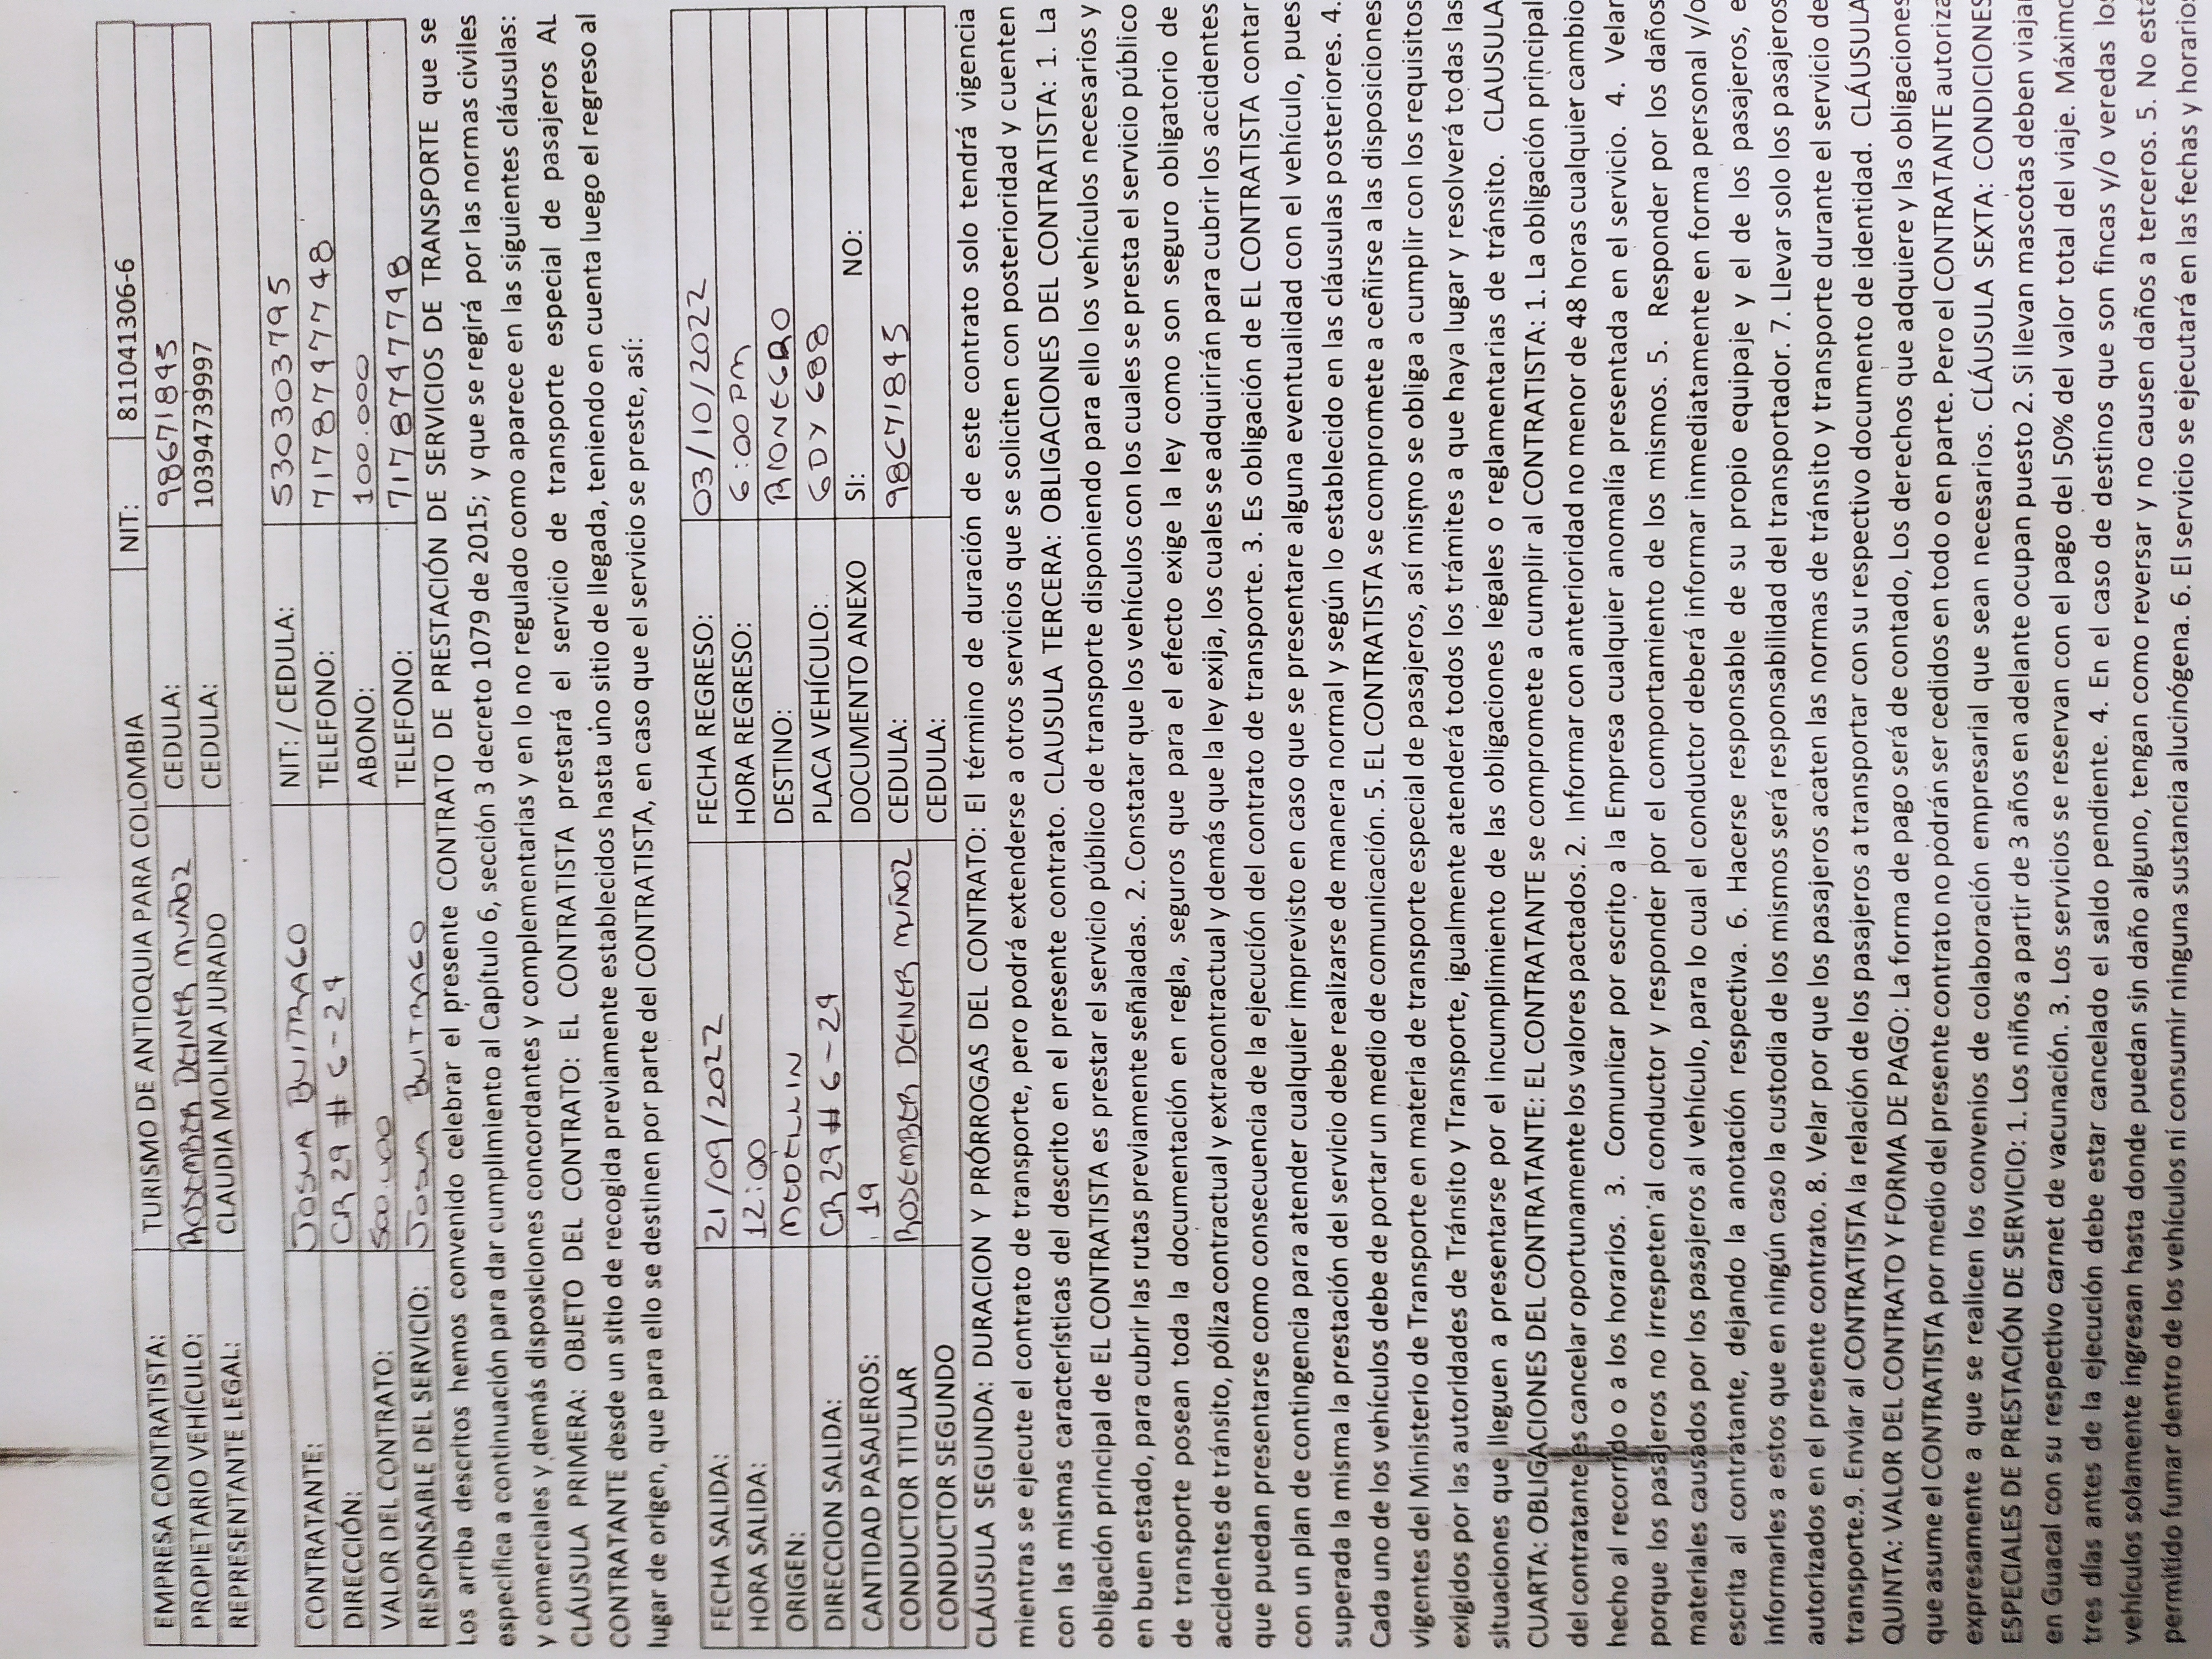 EMPRESA CONTRATISTA: TURISMO DE ANTIOQUIA PARA COLOMBIA NIT: 811041306-6
PROPIETARIO VEHÍCULO: ROSEMBER DEINER MUÑOZ CEDULA: 98671845
REPRESENTANTE LEGAL: CLAUDIA MOLINA JURADO CEDULA: 1039473997
CONTRATANTE: JOSUA BUITRAGO NIT: / CEDULA: 530303795
DIRECCIÓN: CR 29 # 6-29 TELEFONO: 7178747748
VALOR DEL CONTRATO: 500.000 ABONO: 100.000
RESPONSABLE DEL SERVICIO: Josua BUITRAGO TELEFONO: 7178747748
Los arriba descritos hemos convenido celebrar el presente CONTRATO DE PRESTACIÓN DE SERVICIOS DE TRANSPORTE que se
especifica a continuación para dar cumplimiento al Capítulo 6, sección 3 decreto 1079 de 2015; y que se regirá por las normas civiles
y comerciales y demás disposiciones concordantes y complementarias y en lo no regulado como aparece en las siguientes cláusulas:
CLÁUSULA PRIMERA: OBJETO DEL CONTRATO: EL CONTRATISTA prestará el servicio de transporte especial de pasajeros AL
CONTRATANTE desde un sitio de recogida previamente establecidos hasta uno sitio de llegada, teniendo en cuenta luego el regreso al
lugar de origen, que para ello se destinen por parte del CONTRATISTA, en caso que el servicio se preste, así:
FECHA SALIDA: 21/09/2022 FECHA REGRESO: 03/10/2022
HORA SALIDA: 12:00 HORA REGRESO: 6:00 PM
ORIGEN: MEDELLIN DESTINO: RIONEGRO
DIRECCION SALIDA: CR 29 # 6-29 PLACA VEHÍCULO: GDY 688
CANTIDAD PASAJEROS: 19 DOCUMENTO ANEXO SI: NO:
CONDUCTOR TITULAR ROSEMBER DEINER MUÑOZ CEDULA: 98671845
CONDUCTOR SEGUNDO CEDULA:
CLÁUSULA SEGUNDA: DURACION Y PRÓRROGAS DEL CONTRATO: El término de duración de este contrato solo tendrá vigencia
mientras se ejecute el contrato de transporte, pero podrá extenderse a otros servicios que se soliciten con posterioridad y cuenten
con las mismas características del descrito en el presente contrato. CLAUSULA TERCERA: OBLIGACIONES DEL CONTRATISTA: 1. La
obligación principal de EL CONTRATISTA es prestar el servicio público de transporte disponiendo para ello los vehículos necesarios y
en buen estado, para cubrir las rutas previamente señaladas. 2. Constatar que los vehículos con los cuales se presta el servicio público
de transporte posean toda la documentación en regla, seguros que para el efecto exige la ley como son seguro obligatorio de
accidentes de tránsito, póliza contractual y extracontractual y demás que la ley exija, los cuales se adquirirán para cubrir los accidentes
que puedan presentarse como consecuencia de la ejecución del contrato de transporte. 3. Es obligación de EL CONTRATISTA contar
con un plan de contingencia para atender cualquier imprevisto en caso que se presentare alguna eventualidad con el vehículo, pues
superada la misma la prestación del servicio debe realizarse de manera normal y según lo establecido en las cláusulas posteriores. 4.
Cada uno de los vehículos debe de portar un medio de comunicación. 5. EL CONTRATISTA se compromete a ceñirse a las disposiciones
vigentes del Ministerio de Transporte en materia de transporte especial de pasajeros, así mismo se obliga a cumplir con los requisitos
exigidos por las autoridades de Tránsito y Transporte, igualmente atenderá todos los trámites a que haya lugar y resolverá todas las
situaciones que lleguen a presentarse por el incumplimiento de las obligaciones legales o reglamentarias de tránsito. CLAUSULA
CUARTA: OBLIGACIONES DEL CONTRATANTE: EL CONTRATANTE se compromete a cumplir al CONTRATISTA: 1. La obligación principal
del contratante es cancelar oportunamente los valores pactados. 2. Informar con anterioridad no menor de 48 horas cualquier cambio
hecho al recorrido o a los horarios. 3. Comunicar por escrito a la Empresa cualquier anomalía presentada en el servicio. 4. Velar
porque los pasajeros no irrespeten al conductor y responder por el comportamiento de los mismos. 5. Responder por los daños
materiales causados por los pasajeros al vehículo, para lo cual el conductor deberá informar inmediatamente en forma personal y/o
escrita al contratante, dejando la anotación respectiva. 6. Hacerse responsable de su propio equipaje y el de los pasajeros, e
informarles a estos que en ningún caso la custodia de los mismos será responsabilidad del transportador. 7. Llevar solo los pasajeros
autorizados en el presente contrato. 8. Velar por que los pasajeros acaten las normas de tránsito y transporte durante el servicio de
transporte.9. Enviar al CONTRATISTA la relación de los pasajeros a transportar con su respectivo documento de identidad. CLÁUSULA
QUINTA: VALOR DEL CONTRATO Y FORMA DE PAGO: La forma de pago será de contado, Los derechos que adquiere y las obligaciones
que asume el CONTRATISTA por medio del presente contrato no podrán ser cedidos en todo o en parte. Pero el CONTRATANTE autoriza
expresamente a que se realicen los convenios de colaboración empresarial que sean necesarios. CLÁUSULA SEXTA: CONDICIONES
ESPECIALES DE PRESTACIÓN DE SERVICIO: 1. Los niños a partir de 3 años en adelante ocupan puesto 2. Si llevan mascotas deben viajar
en Guacal con su respectivo carnet de vacunación. 3. Los servicios se reservan con el pago del 50% del valor total del viaje. Máximo
tres días antes de la ejecución debe estar cancelado el saldo pendiente. 4. En el caso de destinos que son fincas y/o veredas los
vehículos solamente ingresan hasta donde puedan sin daño alguno, tengan como reversar y no causen daños a terceros. 5. No está
permitido fumar dentro de los vehículos ni consumir ninguna sustancia alucinógena. 6. El servicio se ejecutará en las fechas y horarios